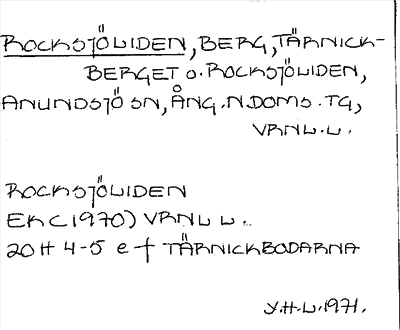 ROCKSJÖLIDEN, BERG, TÄRNICK-
BERGET O. ROCKSJÖLIDEN,
ANUNDSJÖ SN, ÅNG. N. DOMS. TG,
VRNL. L.
ROCKSJÖLIDEN
EK (1970) VRNL L.
20H 4-5 e f TÄRNICKBODARNA
Y.H.L. 1971.